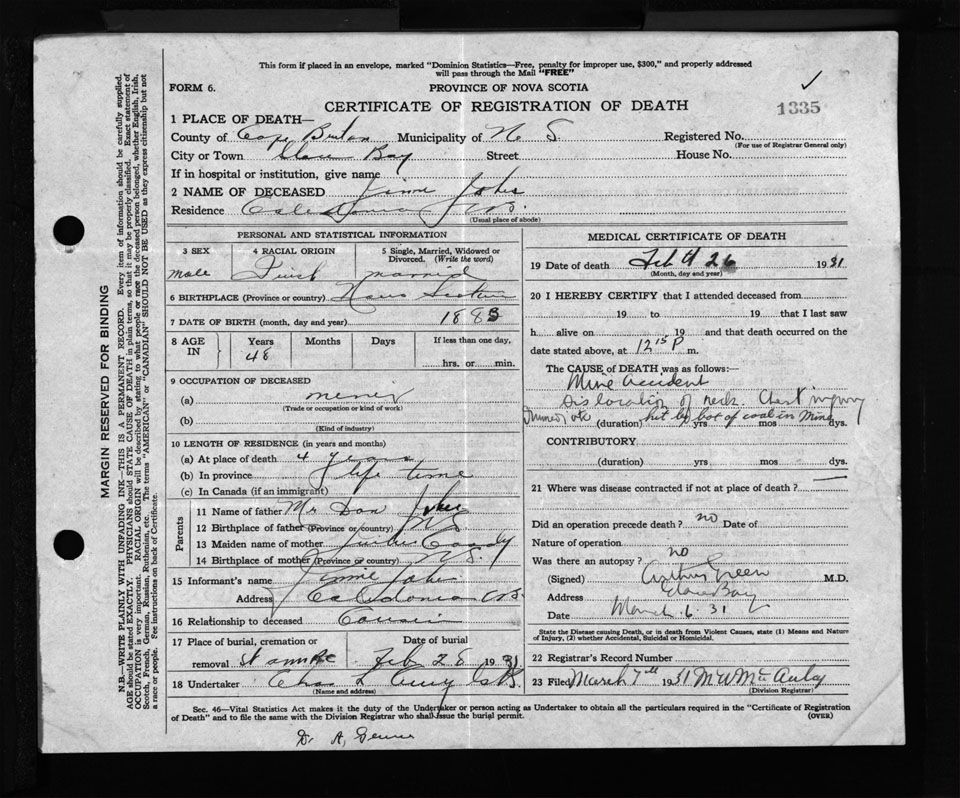 This form if placed in an envelope, marked "Dominion Statistics—Free, penalty for improper use, $300," and properly addressed
will pass through the Mail "FREE"
FORM 6.
PROVINCE OF NOVA SCOTIA
CERTIFICATE OF REGISTRATION OF DEATH
1335
1 PLACE OF DEATH—
County of Cape Breton Municipality of N S. Registered No.
(For use of Registrar General only)
City or Town Glace Bay Street House No.
If in hospital or institution, give name
2 NAME OF DECEASED
Residence Caledonia
(Usual place of abode)
PERSONAL AND STATISTICAL INFORMATION
3 SEX 4 RACIAL ORIGIN 5 Single, Married, Widowed or
Divorced. (Write the word)
male married
6 BIRTHPLACE (Province or country) Nova Scotia
7 DATE OF BIRTH (month, day and year) 1883
8 AGE IN Years Months Days If less than one day,
48 hrs. or min.
9 OCCUPATION OF DECEASED
(a) miner
(Trade or occupation or kind of work)
(b)
(Kind of industry)
10 LENGTH OF RESIDENCE (in years and months)
(a) At place of death 4 years
(b) In province life time
(c) In Canada (if an immigrant)
Parents
11 Name of father Mr Dan
12 Birthplace of father (Province or country) N S.
13 Maiden name of mother
14 Birthplace of mother (Province or country) N S.
15 Informant's name
Address Caledonia
16 Relationship to deceased Cousin
17 Place of burial, cremation or Date of burial
removal St Anne Feb 28 1931
18 Undertaker
(Name and address)
MEDICAL CERTIFICATE OF DEATH
19 Date of death Feb 26 1931
(Month, day and year)
20 I HEREBY CERTIFY that I attended deceased from
19 to 19 that I last saw
h alive on 19 and that death occurred on
date stated above, at 12 15 P m.
The CAUSE OF DEATH was as follows:—
Mine accident
Dislocation of neck. Chest injury
(duration) hit by box of coal in Mine yrs mos dys.
CONTRIBUTORY
(duration) yrs mos dys.
21 Where was disease contracted if not at place of death?
Did an operation precede death? no Date of
Nature of operation
Was there an autopsy? no
(Signed) Arthur Green M.D.
Address Glace Bay
Date March 6. 31
State the Disease causing Death, or in death from Violent Causes, state (1) Means and Nature
of Injury, (2) whether Accidental, Suicidal or Homicidal.
22 Registrar's Record Number
23 Filed March 7th 1931
(Division Registrar)
Sec. 46—Vital Statistics Act makes it the duty of the Undertaker or person acting as Undertaker to obtain all the particulars required in the "Certificate of Registration
of Death" and to file the same with the Division Registrar who shall issue the burial permit. (OVER)
Dr A,
MARGIN RESERVED FOR BINDING
N.B.—WRITE PLAINLY WITH UNFADING INK—THIS IS A PERMANENT RECORD. Every item of information should be carefully supplied.
AGE should be stated EXACTLY. PHYSICIANS should STATE CAUSE OF DEATH in plain terms, so that it may be properly classified. Exact statement of
OCCUPATION is very important. RACIAL ORIGIN will be described by stating to what people or race the deceased person belonged, whether English, Irish,
Scotch, French, German, Russian, Ruthenian, etc. The terms "AMERICAN" or "CANADIAN" SHOULD NOT BE USED as they express citizenship but not
a race or people. See instructions on back of Certificate.